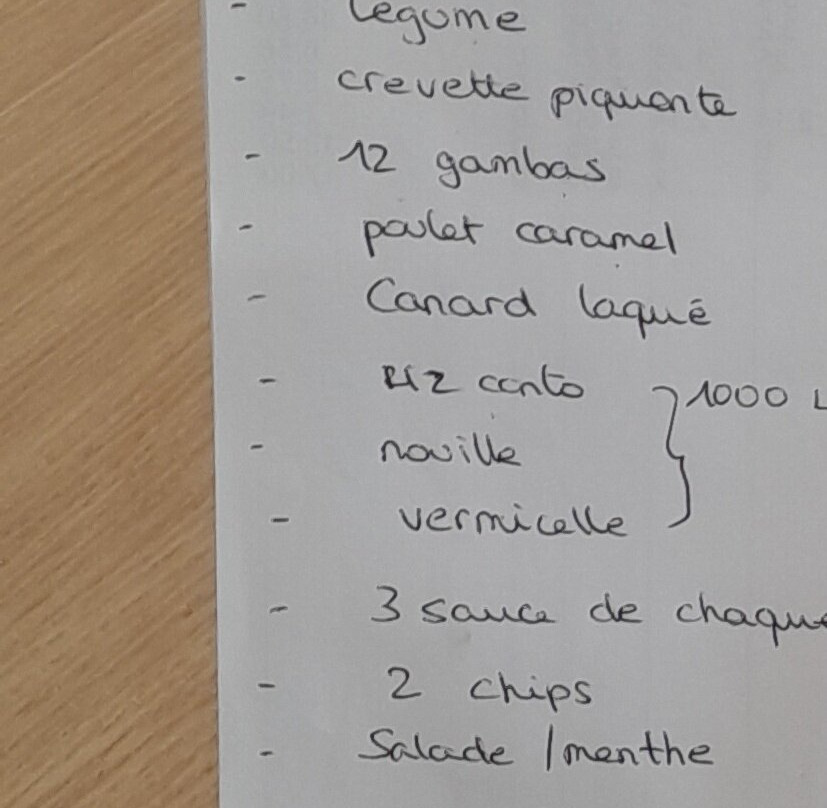 - légume
- crevette piquante
- 12 gambas
- poulet caramel
- Canard laqué
- Riz canto } 1000 L
- nouille
- vermicelle
- 3 sauce de chaque
- 2 chips
- Salade / menthe